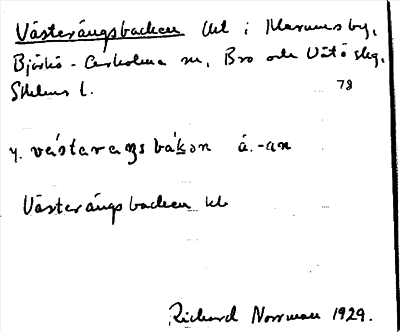 Västerängsbacken Ut i Marumsby,
Björkö-Arholma sn, Bro och Vätö slg,
Sthlms l. 78
y. västaraŋsbákən á.-an
Västerängsbacken kb
Richard Norrman 1929.